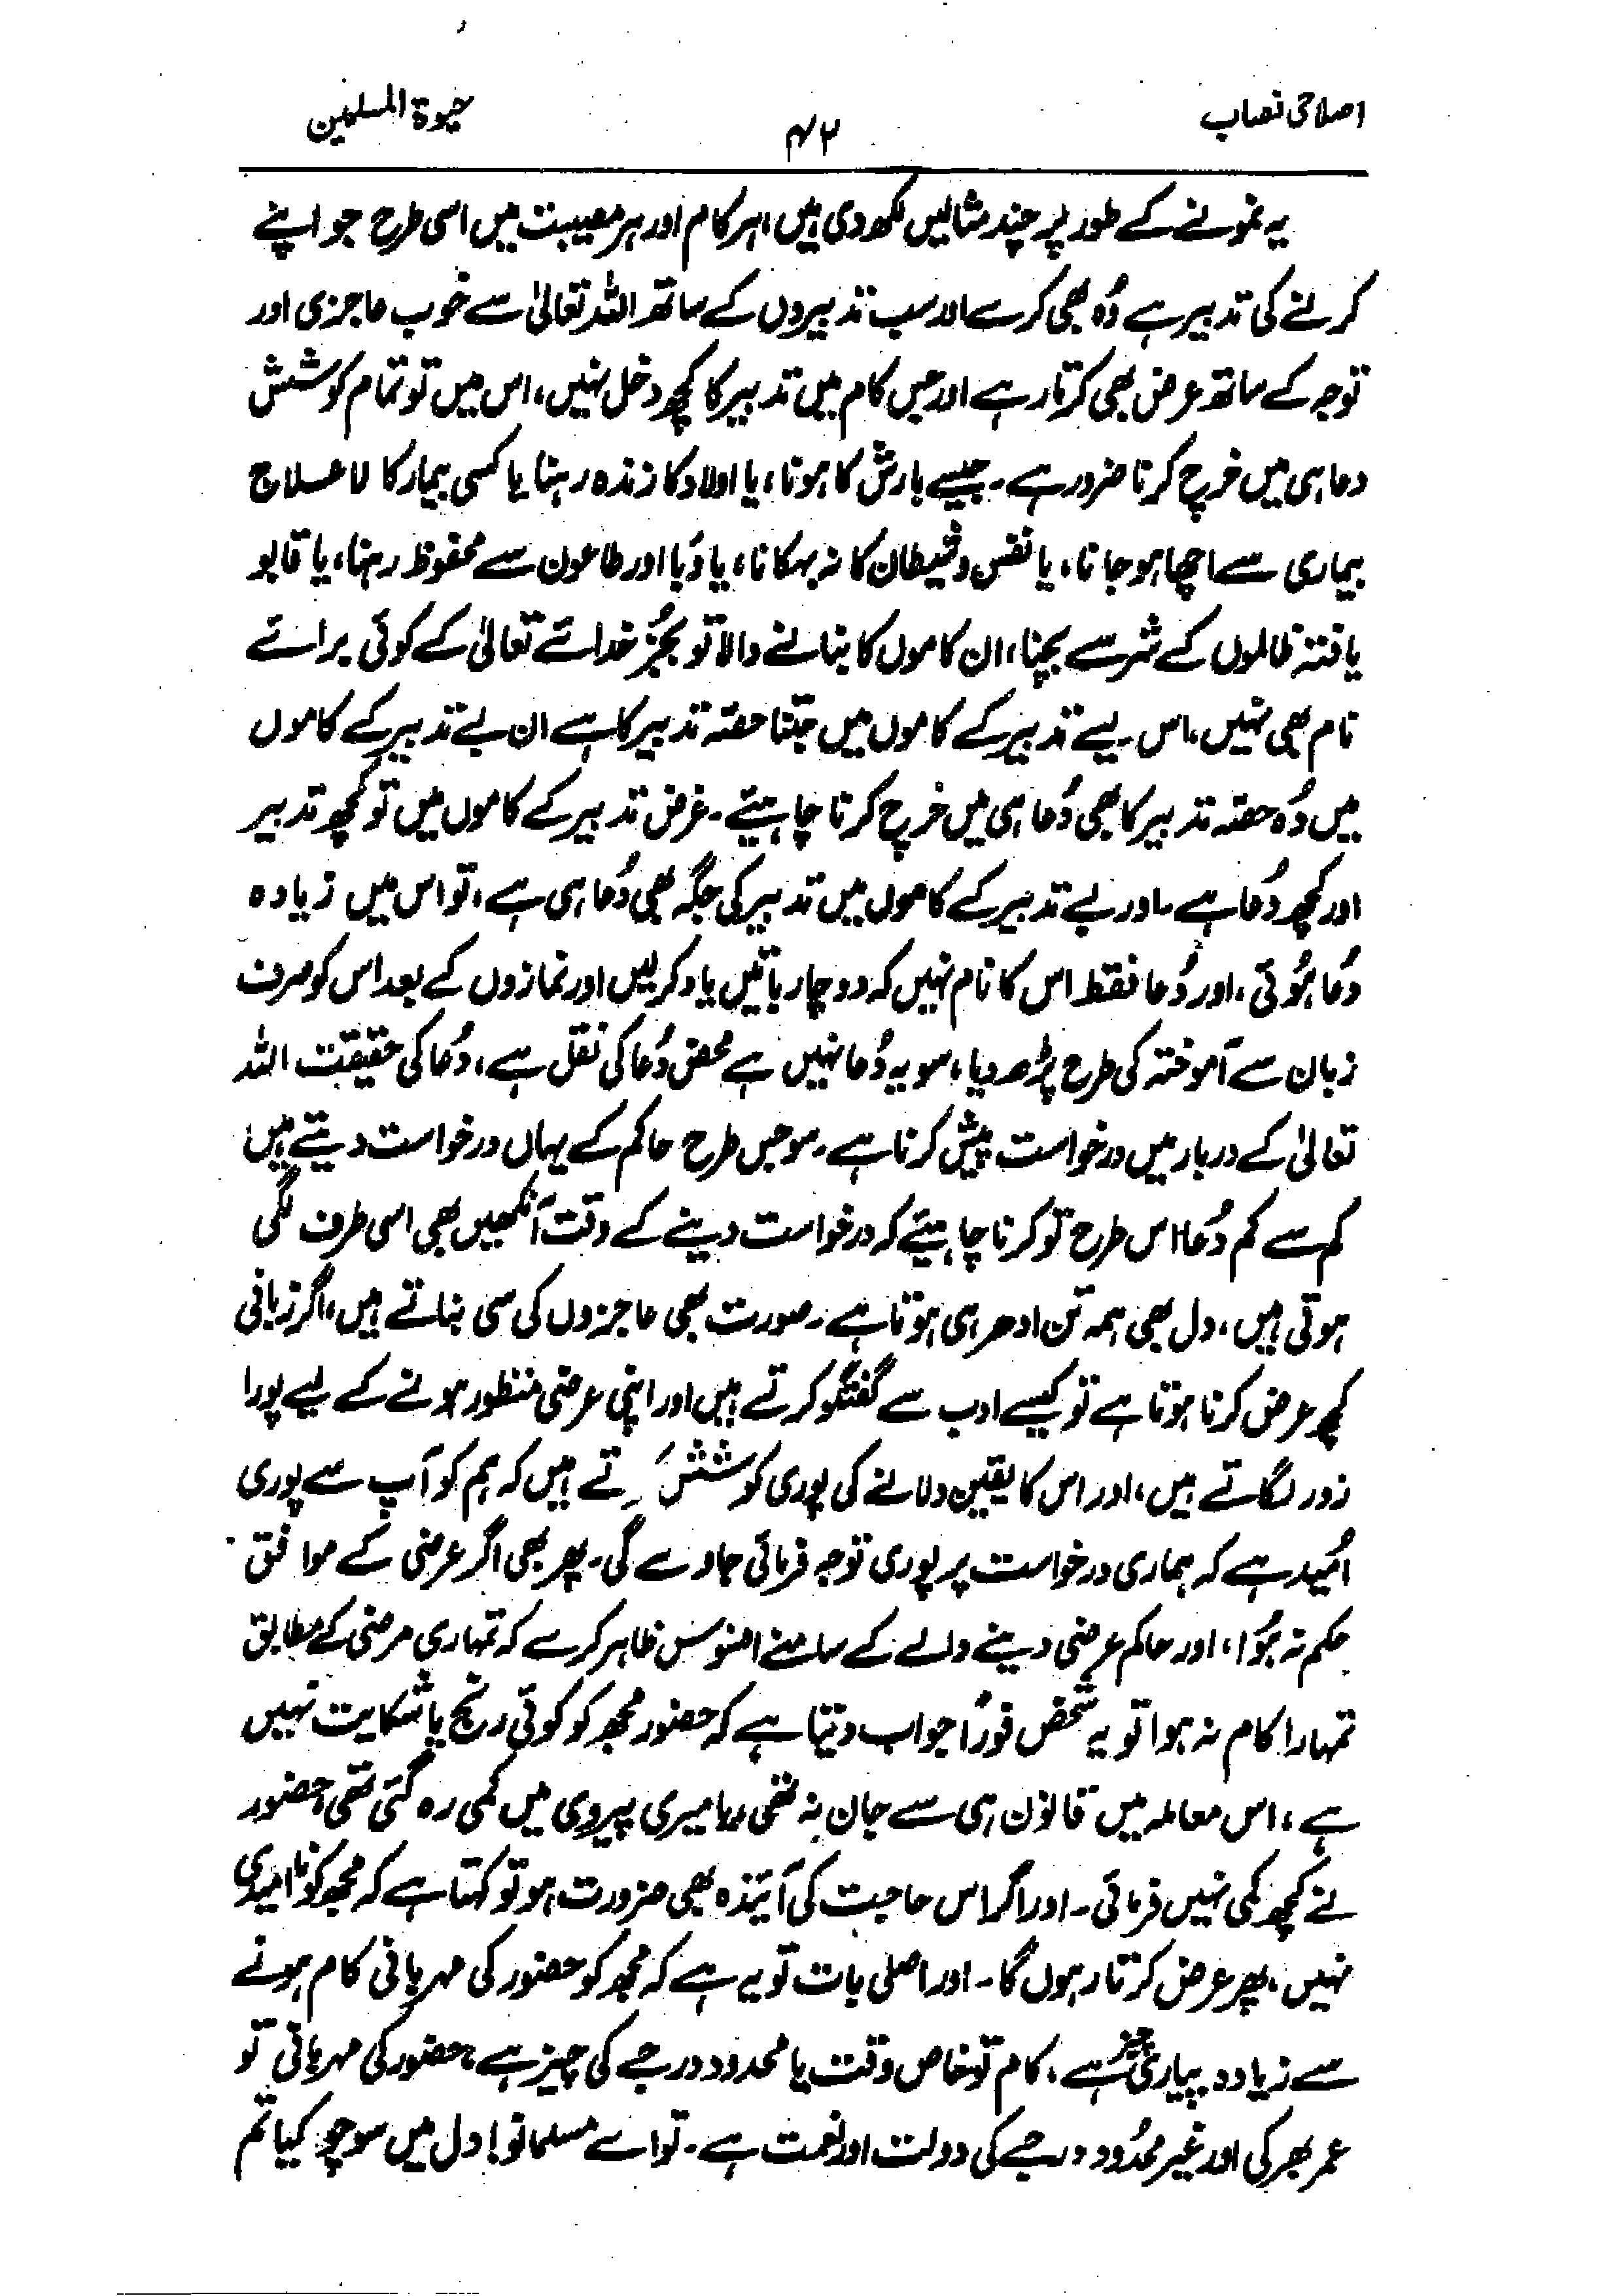 اصلاحی نصاب
۴۲
حیٰوۃ المسلمین
یہ نمونے کے طور پر چند مثالیں لکھ دی ہیں اہر کام اور ہر مصیبت میں اسی طرح جو اپنے
کرنے کی تدبیر ہے وُہ بھی کرے اور سب تدبیروں کے ساتھ اللہ تعالیٰ سے خوب عاجزی اور
توجہ کے ساتھ عرض بھی کرتا رہے اور جس کام میں تدبیر کا کچھ دخل نہیں، اس میں تو تمام کوشش
دعا ہی میں خرچ کرنا ضرور ہے۔ جیسے بارش کا ہونا، یا اولاد کا زندہ رہنا یا کسی بیمار کا لا علاج
بیماری سے اچھا ہو جانا، یا نفس و شیطان کا نہ بہکانا، یا وَبا اور طاعون سے محفوظ رہنا، یا قابو
یافتہ ظالموں کے شر سے بچنا، ان کاموں کا بنانے والا تو بجُز خدائے تعالیٰ کے کوئی برائے
نام بھی نہیں، اس لیے تدبیر کے کاموں میں جتنا حصّہ تدبیر کا ہے ان بے تدبیر کے کاموں
میں وُہ حصّہ تدبیر کا بھی دُعا ہی میں خرچ کرنا چاہیئے۔ غرض تدبیر کے کاموں میں تو کچھ تدبیر
اور کچھ دُعا ہے۔ اور بے تدبیر کے کاموں میں تدبیر کی جگہ بھی دُعا ہی ہے، تو اس میں زیادہ
دُعا ہُوئی، اور دُعا فقط اس کا نام نہیں کہ دو چار باتیں یاد کر لیں اور نمازوں کے بعد اس کو صرف
زبان سے آموختہ کی طرح پڑھ دیا، سو یہ دُعا نہیں ہے محض دُعا کی نقل ہے، دُعا کی حقیقت اللہ
تعالیٰ کے دربار میں درخواست پیش کرنا ہے۔ سو جس طرح حاکم کے یہاں درخواست دیتے ہیں
کم سے کم دُعا اس طرح تو کرنا چاہیئے کہ درخواست دینے کے وقت آنکھیں بھی اسی طرف لگی
ہوتی ہیں، دل بھی ہمہ تن ادھر ہی ہوتا ہے۔ صورت بھی عاجزوں کی سی بناتے ہیں، اگر زبانی
کچھ عرض کرنا ہوتا ہے تو کیسے ادب سے گفتگو کرتے ہیں اور اپنی عرضی منظور ہونے کے لیے پورا
زور لگاتے ہیں، اور اس کا یقین دلانے کی پوری کوشش کرتے ہیں کہ ہم کو آپ سے پوری
اُمّید ہے کہ ہماری درخواست پر پوری توجہ فرمائی جاوے گی۔ پھر بھی اگر عرضی کے موافق
حکم نہ ہُوا، اور حاکم عرضی دینے والے کے سامنے افسوس ظاہر کرے کہ تمہاری مرضی کے مطابق
تمہارا کام نہ ہوا تو یہ شخص فوراً جواب دیتا ہے کہ حضور مجھ کو کوئی رنج یا شکایت نہیں
ہے، اس معاملہ میں قانون ہی سے جان نہ تھی، یا میری پیروی میں کمی رہ گئی تھی، حضور
نے کچھ کمی نہیں فرمائی۔ اور اگر اس حاجت کی آئندہ بھی ضرورت ہو تو کہتا ہے کہ مجھ کو نا امیدی
نہیں، پھر عرض کرتا رہوں گا۔ اور اصلی بات تو یہ ہے کہ مجھ کو حضور کی مہربانی کام ہونے
سے زیادہ پیاری چیز ہے، کام تو خاص وقت یا محدود درجے کی چیز ہے، حضور کی مہربانی تو
عمر بھر کی اور غیر محدُود درجے کی دولت اور نعمت ہے۔ تو اے مسلمانو! دل میں سوچو کیا تم